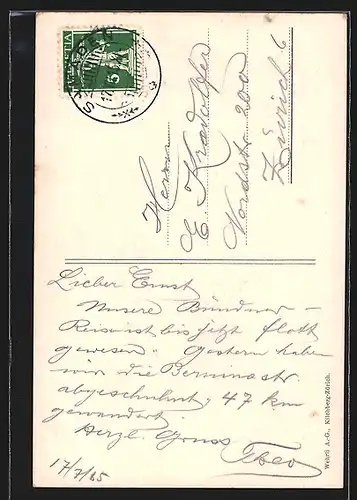 HELVETIA
5
Herrn
E. Kradolfer
Nordstr. 200
Zürich 6
Lieber Ernst
Unsere Bündner-
Reise ist bis jetzt flott
gewesen. Gestern haben
wir die Berninastr.
abgeschuhnt, 47 km
gewandert.
Herzl. Gruss
Theo
17/7/25
Wehrli A.-G., Kilchberg-Zürich.